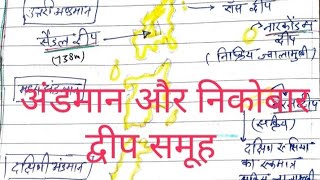 उत्तरी अंडमान
रॉस द्वीप
सैडल द्वीप
(738m)
नारकोंडम
द्वीप
(निष्क्रिय ज्वालामुखी)
अंडमान और निकोबार
द्वीप समूह
(सक्रिय)
दक्षिण एशिया
का एकमात्र
दक्षिणी अंडमान